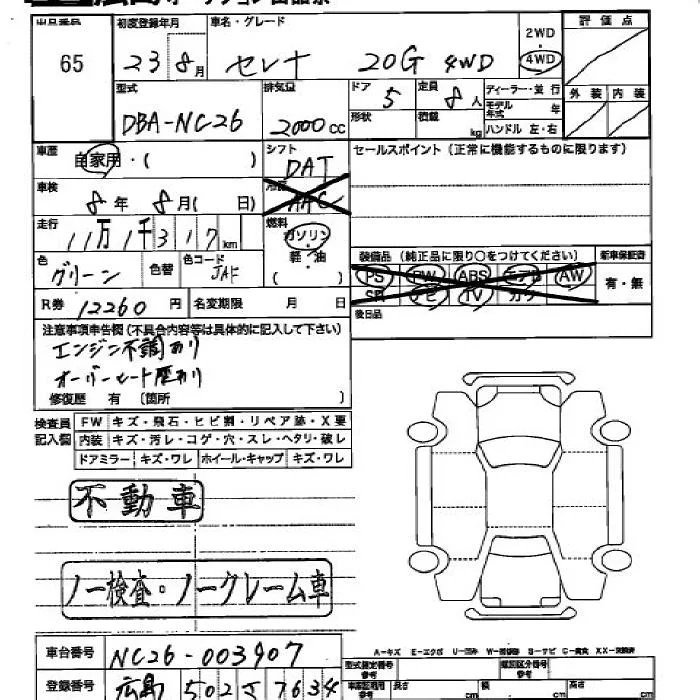 出品番号 初度登録年月 車名・グレード 2WD・4WD 評価点
65 23 8月 セレナ 20G 4WD
型式 排気量 ドア 5 定員 8人 ディーラー・並行 外装 内装
DBA-NC26 2000cc 形状 積載 kg モデル年式 年
ハンドル 左・右
車歴 自家用・( ) シフト DAT セールスポイント(正常に機能するものに限ります)
車検 8年 8月( 日) 冷房 AAC
走行 11万1千317km 燃料 ガソリン・軽・油 ( )
色 グリーン 色替 色コード JAF
装備品(純正品に限り○をつけてください) 新車保証書
PS PW ABS エアB AW 有・無
SR ナビ TV カワ
R券 12260円 名変期限 月 日 後日品
注意事項申告欄(不具合内容等は具体的に記入して下さい)
エンジン不調有り
オーバーヒート歴有り
修復歴 有 〔箇所 〕
検査員記入欄 FW キズ・飛石・ヒビ割・リペア跡・X要
内装 キズ・汚レ・コゲ・穴・スレ・ヘタリ・破レ
ドアミラー キズ・ワレ ホイール・キャップ キズ・ワレ
不動車
ノー検査・ノークレーム車
A-キズ E-エクボ U-凹み S-サビ C-腐食 XX-交換済
車台番号 NC26-003907
型式指定番号 参考 類別区分番号 参考
登録番号 広島 502 さ 7634
車庫証明用参考 長さ cm 幅 cm 高さ cm